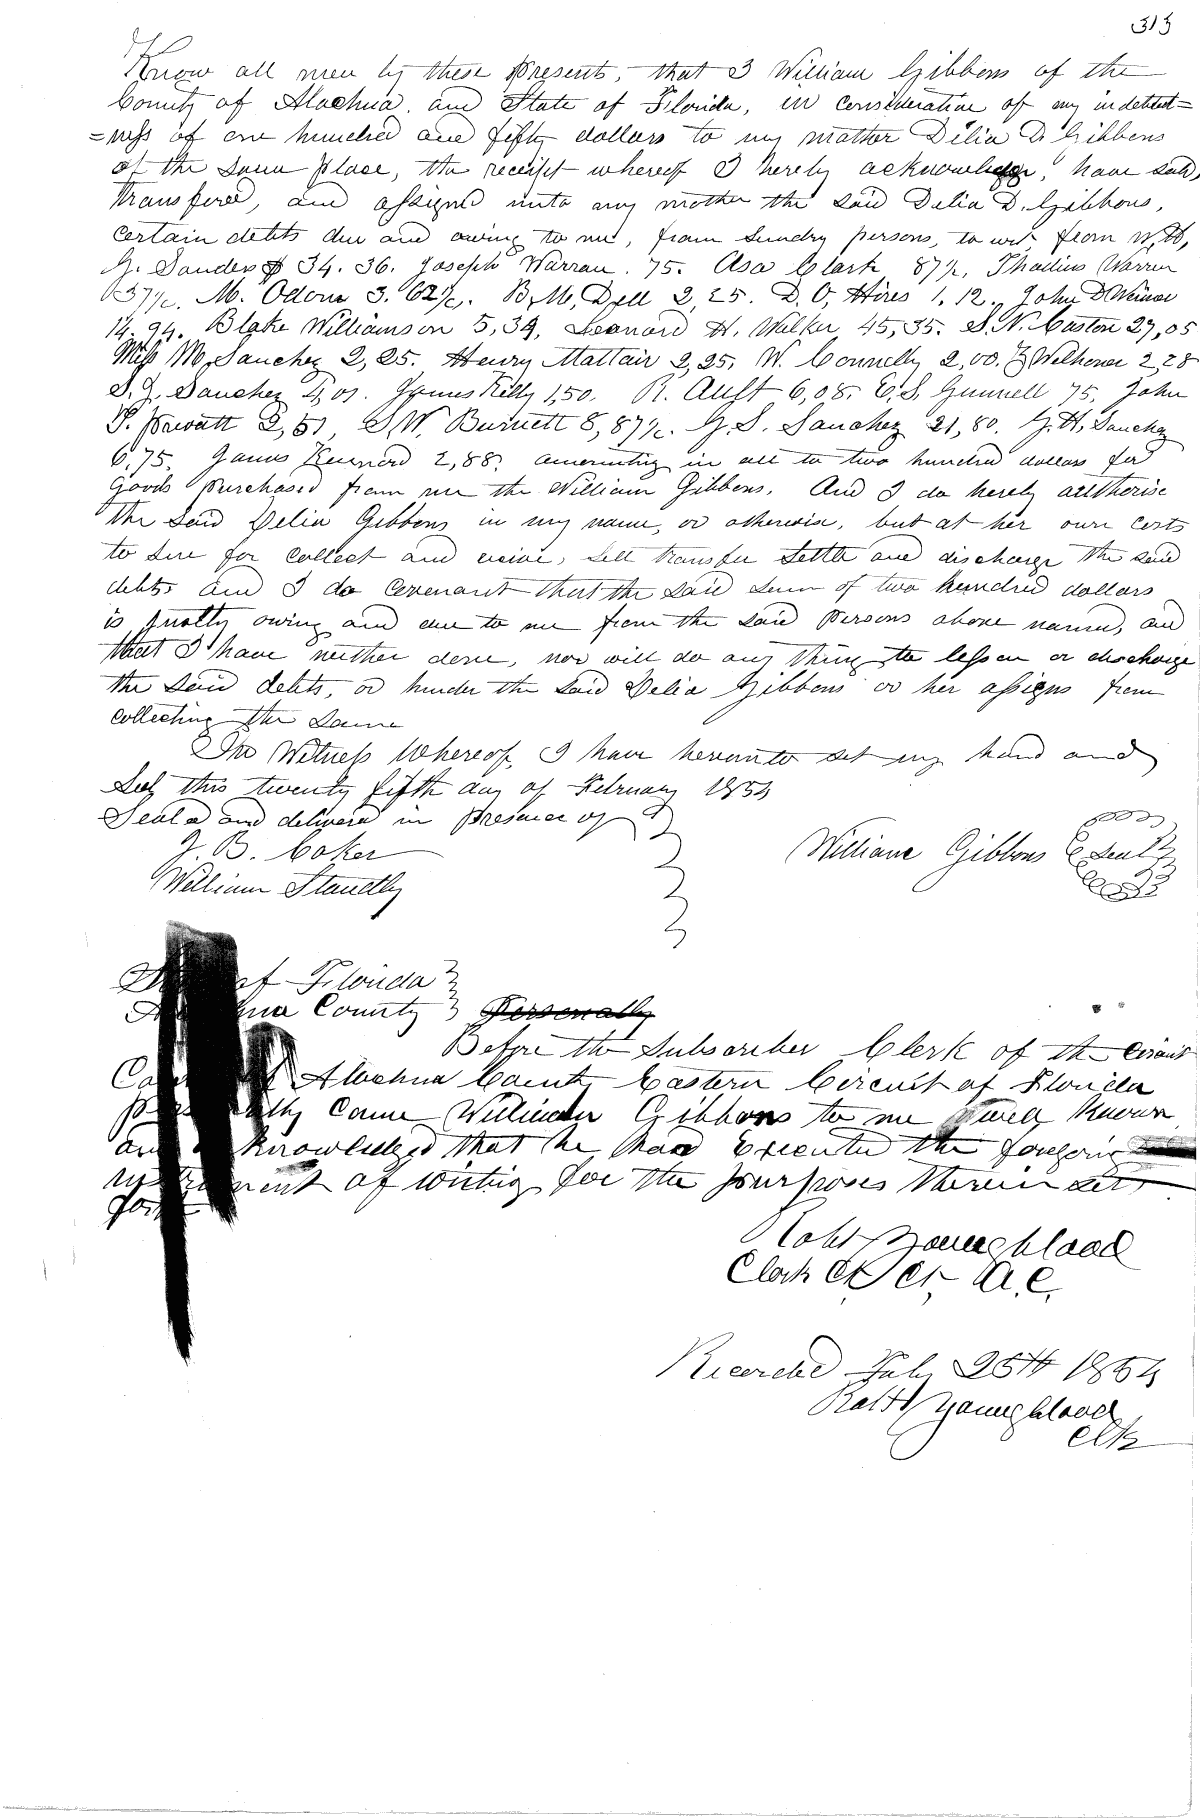 313
Know all men by these presents, that I William Gibbons of the
County of Alachua, and State of Florida, in consideration of my indebted=
=ness of one hundred and fifty dollars to my mother Delia D. Gibbons
of the same place, the receipt whereof I hereby acknowledge, have sold,
transfered, and assigned unto my mother the said Delia D. Gibbons,
certain debts due and owing to me, from sundry persons, to wit, from W. H,
G. Sanders $ 34. 36. Joseph Warran . 75. Asa Clark 87½, Thadius Warren
37½. M. Odom 3. 62½. B, M, Dell 2, 25. D. O, Hires 1. 12. John D
14. 94. Blake Williamson 5, 39, Leonard H. Walker 45, 35. S. N. Caston 27, 05
Miss M, Sanchez 2, 25. Henry Mattair 2, 25, W. Connelly 2, 00. Z Welhoner 2, 28
S. J. Sanchez 4, 01. James Kelly 1,50. R. Aust 6, 08. C. S. Gunnell 75, John
P. Prevatt 2, 51, S. W. Burnett 8, 87½. G. S. Sanchez 21, 80. G. H, Sanchez
6, 75, James Kennard 2, 88, amounting in all to two hundred dollars for
goods purchased from me the William Gibbons. And I do hereby autherise
the said Delia Gibbons in my name, or otherwise, but at her own costs
to sue for collect and recive, sell transfer settle and discharge the said
debts and I do covenant that the said sum of two hundred dollars
is justly owing and due to me from the said persons above named, and
that I have neither done, nor will do any thing to lessen or discharge
the said debts, or hinder the said Delia Gibbons or her assigns from
collecting the same
In Witness Whereof, I have hereunto set my hand and
Seal this twenty fifth day of February 1854
Sealed and delivered in presence of
J. B. Coker
William Gibbons Seal
William Standly
of Florida
County Personally
Before the Subscriber Clerk of the Circuit
Alachua County Eastern Circuit of Florida
came William Gibbons to me well known
and acknowledged that he had Executed the foregoing
instrument of writing for the purposes therein set
forth
Robt Youngblood
Clerk Ct Ct A. C.
Recorded July 25th 1854
Robt Youngblood
Clk